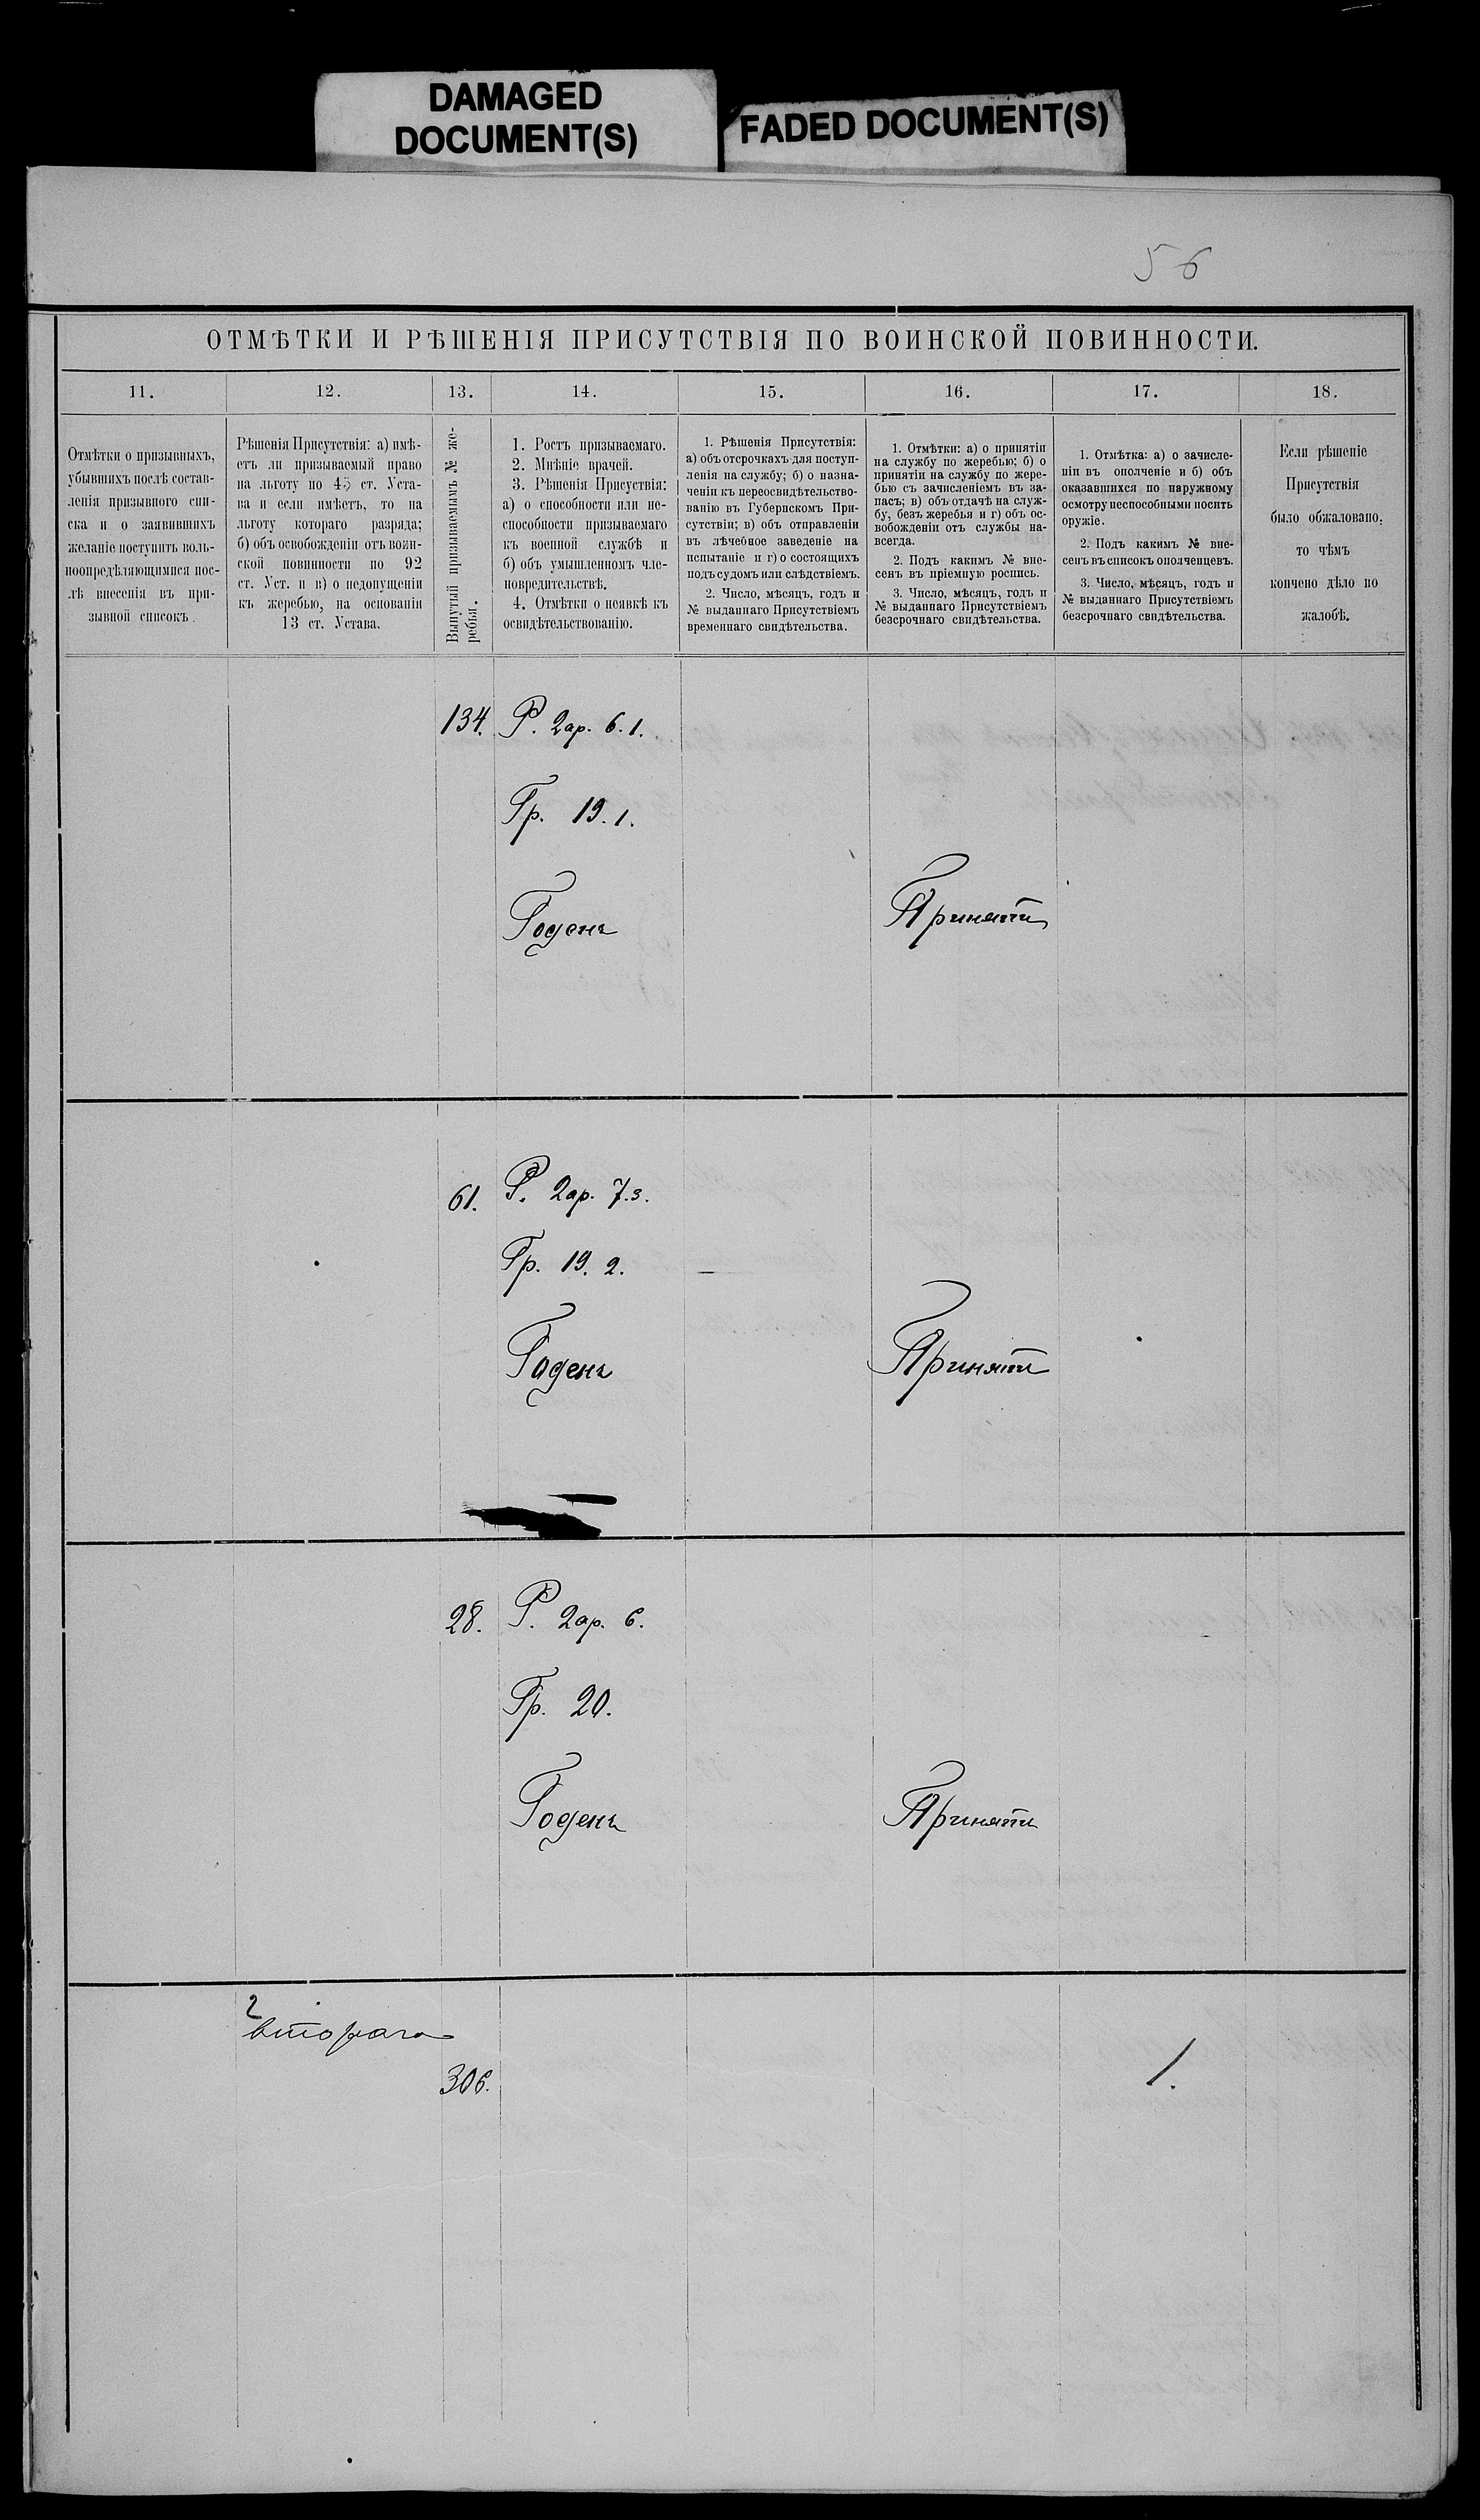 DAMAGED
DOCUMENT(S)
FADED DOCUMENT(S)
56
ОТМѢТКИ И РѢШЕНІЯ ПРИСУТСТВІЯ ПО ВОИНСКОЙ ПОВИННОСТИ.
11.
12.
13.
14.
15.
16.
17.
18.
Отмѣтки о призывныхъ,
убывшихъ послѣ состав-
ленія призывного спи-
ска и о заявившихъ
желаніе поступить воль-
ноопредѣляющимися пос-
лѣ внесенія въ при-
зывной списокъ.
Рѣшенія Присутствія: а) имѣ-
етъ ли призываемый право
на льготу по 45 ст. Уста-
ва и если имѣетъ, то на
льготу котораго разряда;
б) объ освобожденіи отъ воин-
ской повинности по 92
ст. Уст. и в) о недопущеніи
къ жеребью, на основаніи
13 ст. Устава.
Вынутый призываемымъ № же-
ребья.
1. Ростъ призываемаго.
2. Мнѣніе врачей.
3. Рѣшенія Присуствія:
а) о способности или не-
способности призываемаго
къ военной службѣ и
б) объ умышленномъ чле-
новредительствѣ.
4. Отмѣтки о неявкѣ къ
освидѣтельствованію.
1. Рѣшенія Присутствія:
а) объ отсрочкахъ для поступ-
ленія на службу; б) о назна-
ченіи къ переосвидѣтельство-
ванію въ Губернскомъ При-
сутствіи; в) объ отправленіи
въ лѣчебное заведеніе на
испытаніе и г) о состоящихъ
подъ судомъ или слѣдствіемъ.
2. Число, мѣсяцъ, годъ и
№ выданнаго Присутствіемъ
временнаго свидѣтельства.
1. Отмѣтки: а) о принятіи
на службу по жеребью; б) о
принятіи на службу по жере-
бью съ зачисленіемъ въ за-
пасъ; в) объ отдачѣ на служ-
бу, безъ жеребья и г) объ ос-
вобожденіи отъ службы на-
всегда.
2. Подъ какимъ № вне-
сенъ въ пріемную роспись.
3. Число, мѣсяцъ, годъ и
№ выданнаго Присутствіемъ
безсрочнаго свидѣтельства.
1. Отмѣтка: а) о зачисле-
ніи въ ополченіе и б) объ
оказавшихся по наружному
осмотру неспособными носить
оружіе.
2. Подъ какимъ № вне-
сенъ въ списокъ ополченцевъ.
3. Число, мѣсяцъ, годъ и
№ выданнаго Присутствіемъ
безсрочнаго свидѣтельства.
Если рѣшеніе
Присутствія
было обжаловано,
то чѣмъ
кончено дѣло по
жалобѣ.
134. Р. 2ар. 6.1.
Гр. 19.1.
Годенъ
Принять
61. Р. 2ар. 7.3.
Гр. 19.2.
Годенъ
Принять
28. Р. 2ар. 6.
Гр. 20.
Годенъ
Принять
2
втораго
306.
1.